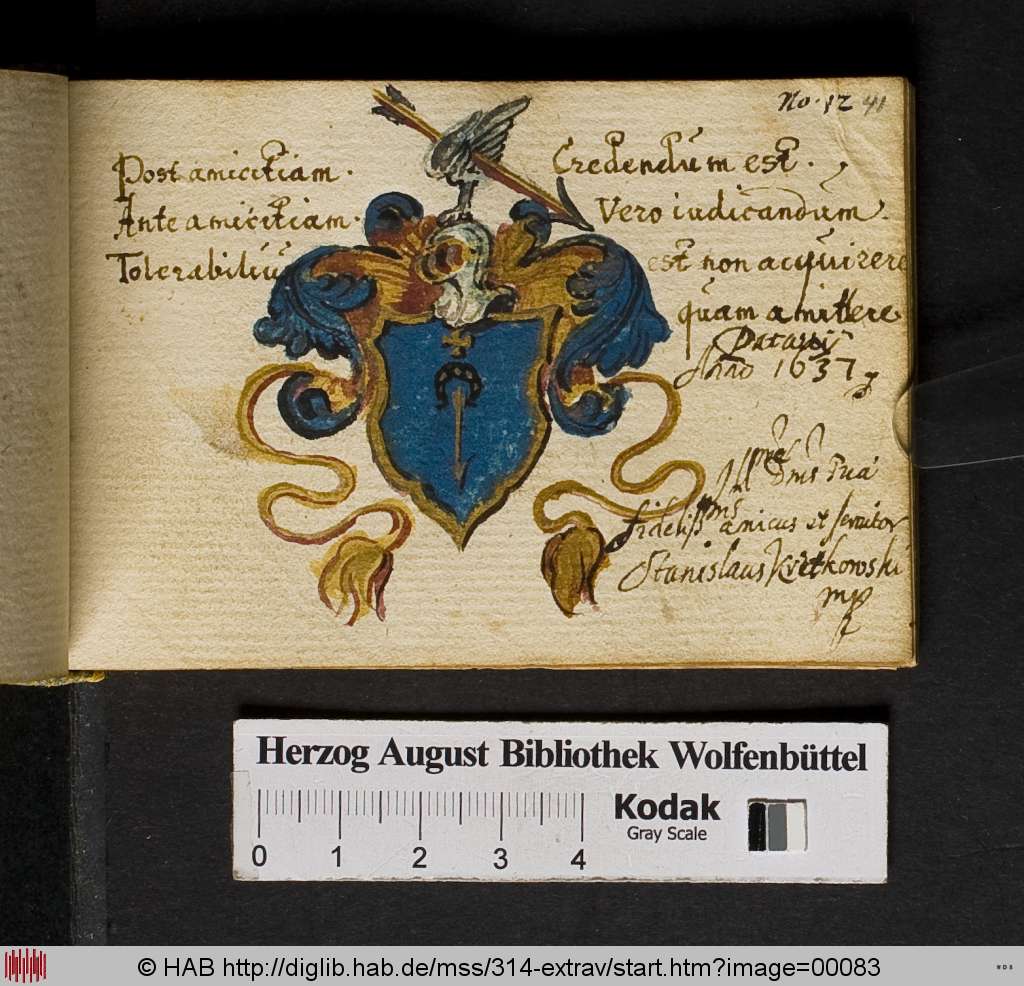 No. 12 41
Post amicitiam. Credendum est.
Ante amicitiam. Vero iudicandum.
Tolerabiliu est non acquirere
quam amittere
Patavii
Anno 1637
Illmae Dnis Tuae
fideliss ms amicus et servitor
Stanislaus Kretkowski
mp
Herzog August Bibliothek Wolfenbüttel
Kodak
Gray Scale
0 1 2 3 4
© HAB http://diglib.hab.de/mss/314-extrav/start.htm?image=00083